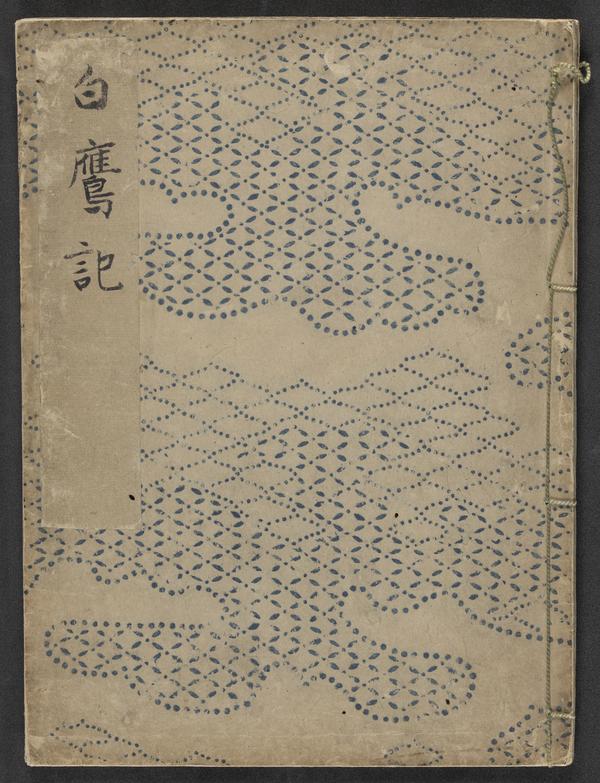 白鷹記